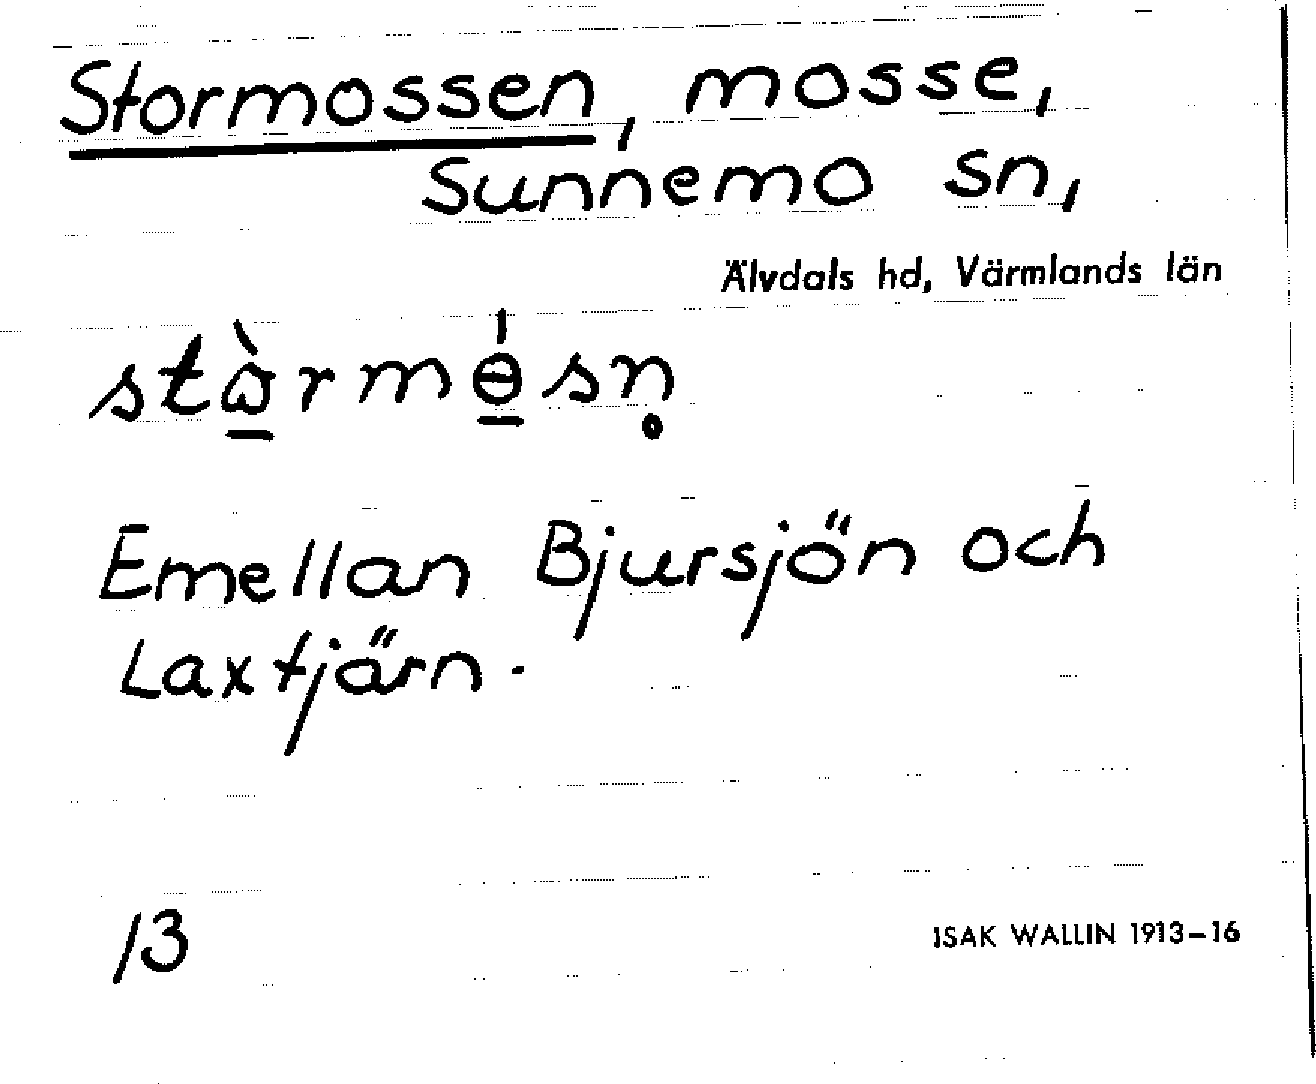 Stormossen, mosse,
Sunnemo sn,
Älvdals hd, Värmlands län
stɷ̠̀rmɵ̠́sn̥
Emellan Bjursjön och
Laxtjärn.
13
ISAK WALLIN 1913–16